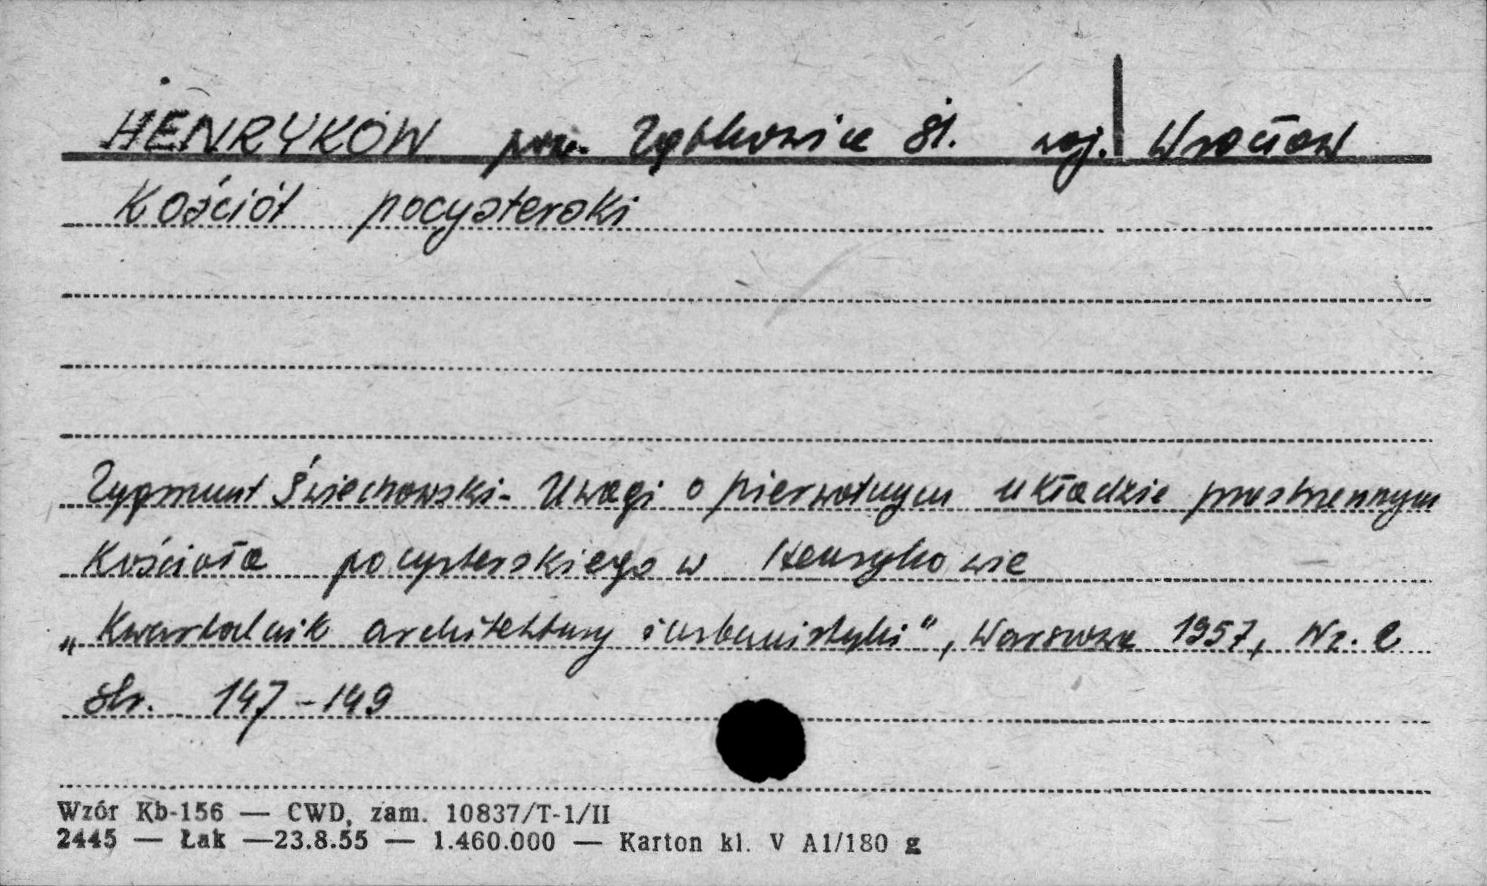 HENRYKÓW pow. Ząbkowice Śl. woj. Wrocław
Kościół pocysterski
Zygmunt Świechowski - Uwagi o pierwotnym układzie przestrzennym
Kościoła pocysterskiego w Henrykowie
„Kwartalnik architektury i urbanistyki", Warszawa 1957, Nr. 2
str. 147-149
Wzór Kb-156 — CWD, zam. 10837/T-1/II
2445 — Łak —23.8.55 — 1.460.000 — Karton kl. V A1/180 g